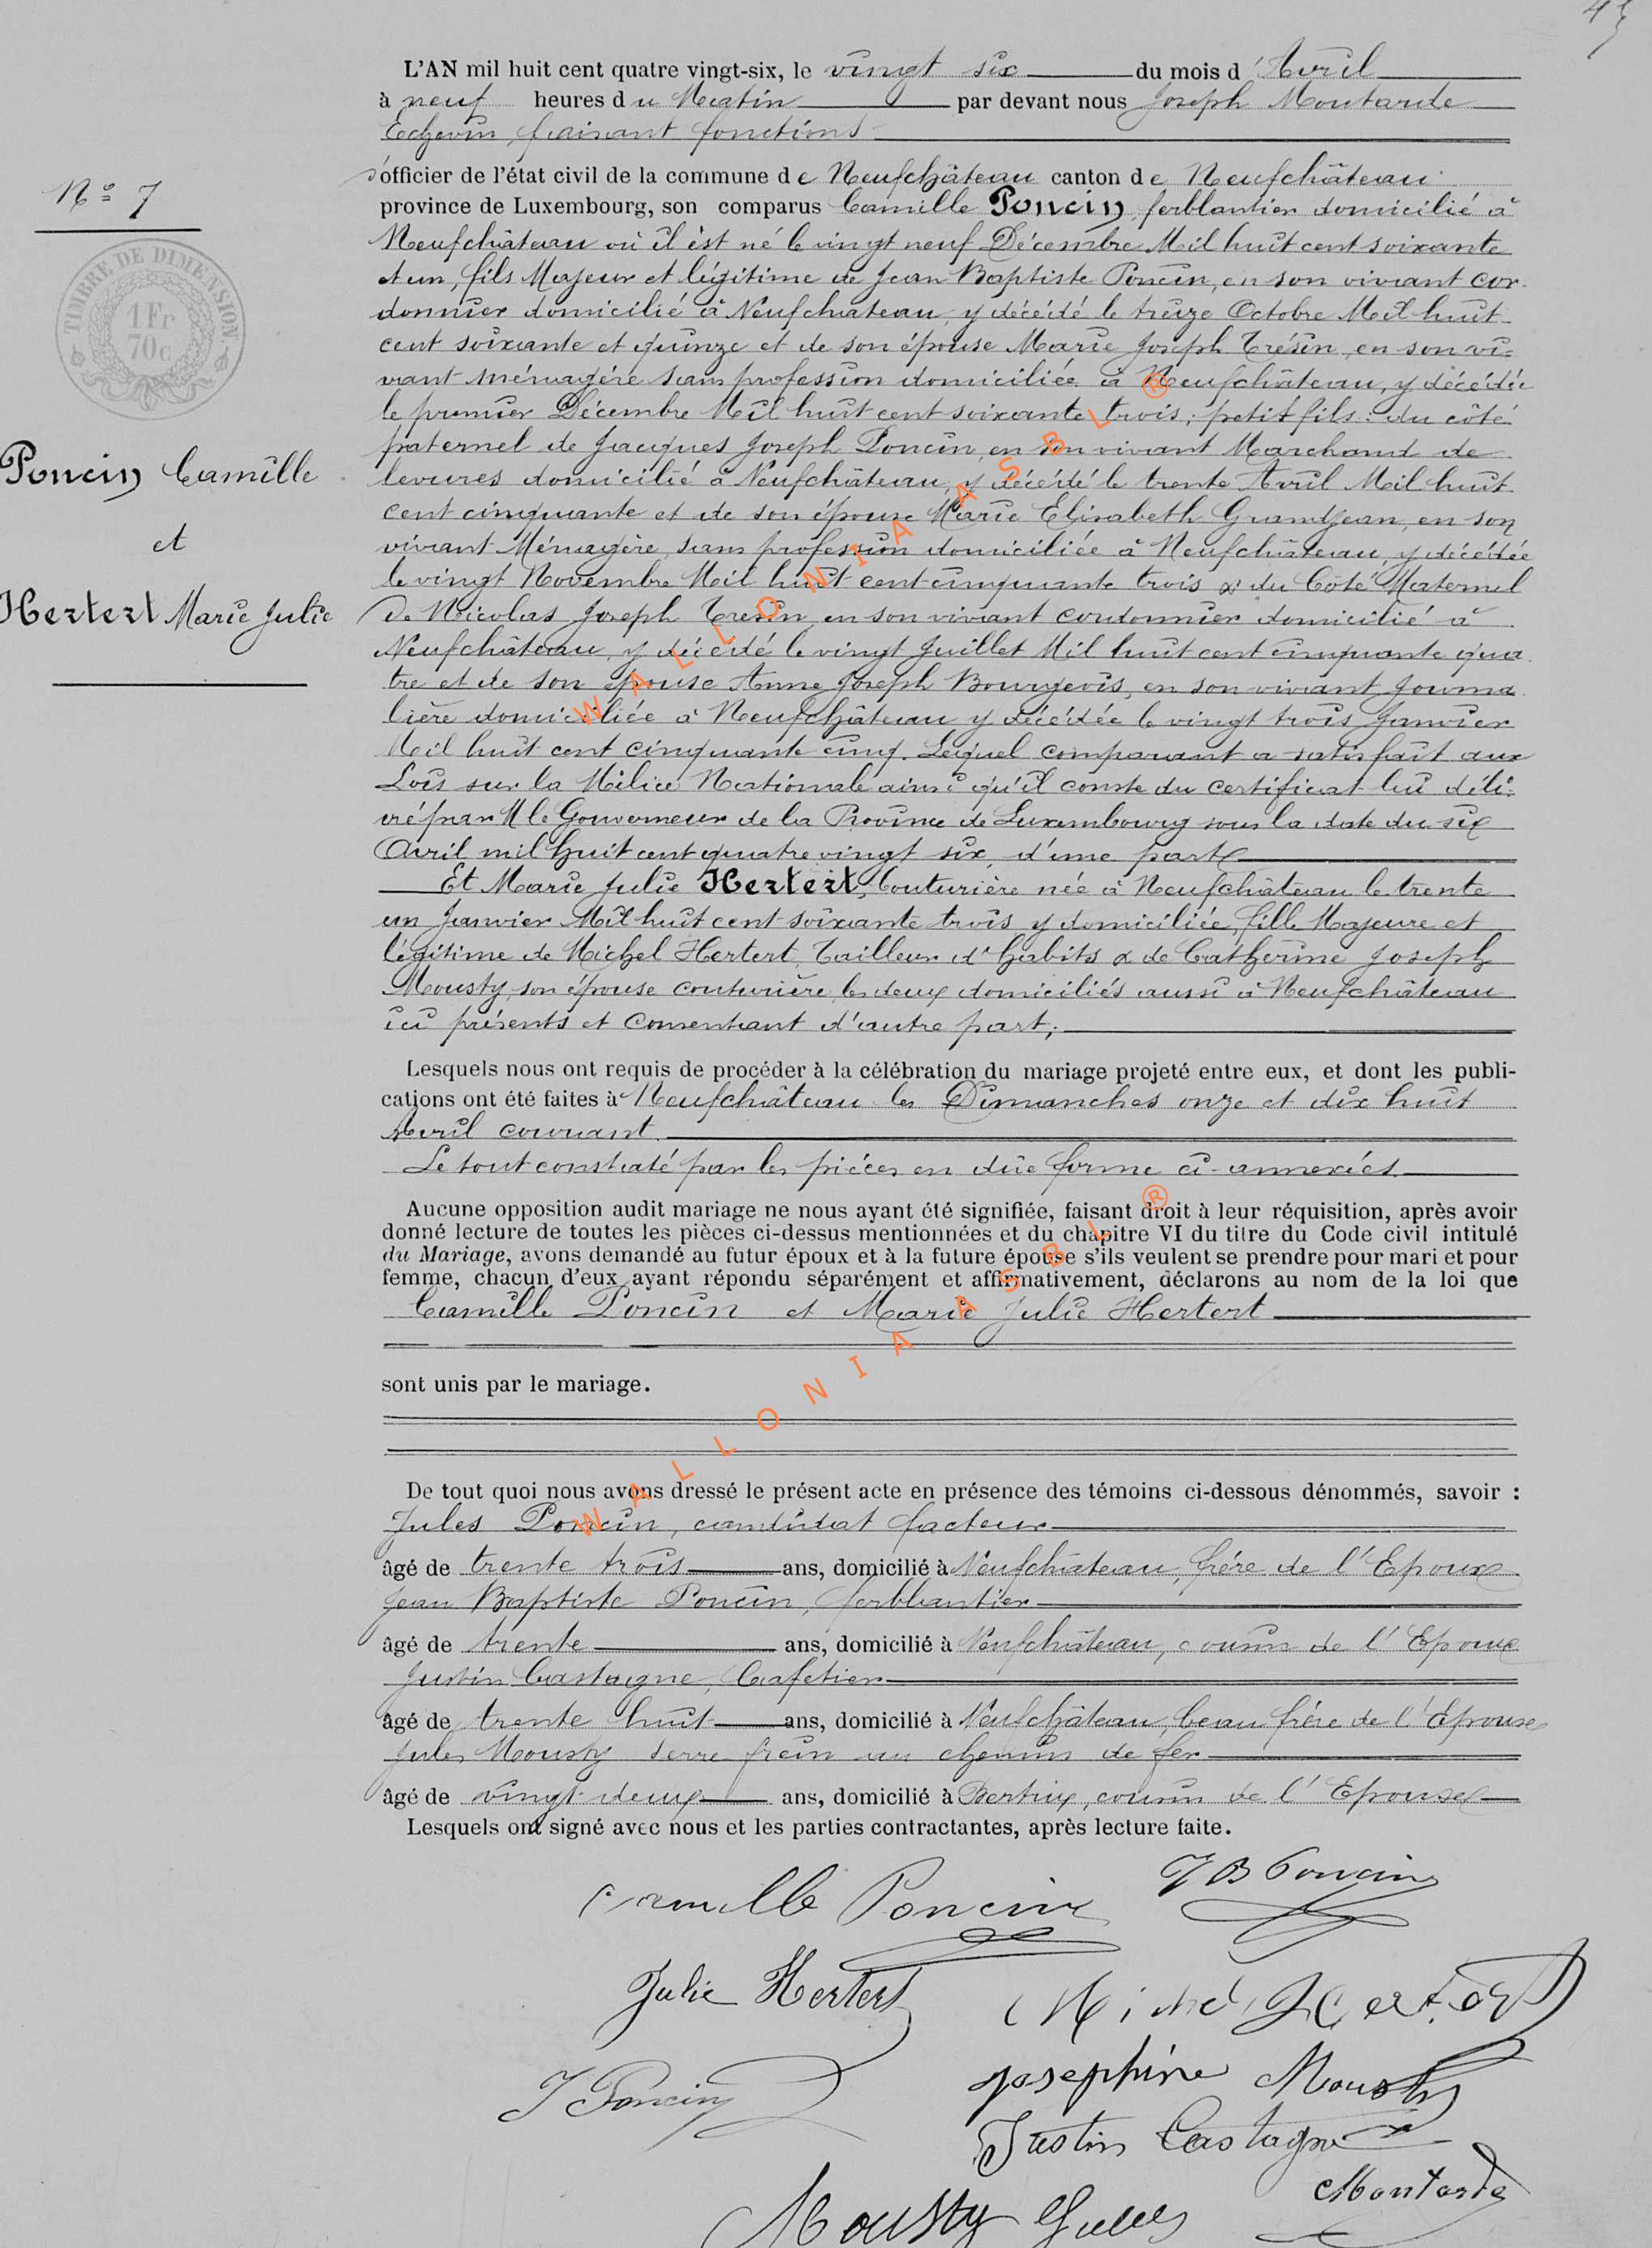 L'AN mil huit cent quatre vingt-six, le vingt six du mois d'Avril
à neuf heures du Matin par devant nous Joseph Moutarde
Echevin, faisant fonctions
d'officier de l'état civil de la commune de Neufchâteau canton de Neufchâteau
N° 7
province de Luxembourg, son comparus Camille Poncin, ferblantier domicilié à
Neufchâteau où il est né le vingt neuf Décembre Mil huit cent soixante
et un, fils Majeur et légitime de Jean Baptiste Poncin, en son vivant cor
donnier domicilié à Neufchateau, y décédé le treize Octobre Mil huit
TIMBRE DE DIMENSION
1 Fr
70c
cent soixante et quinze et de son épouse Marie Joseph Trésin, en son vi-
vant ménagère sans profession domiciliée à Neufchâteau, y décédée
le premier Décembre Mil huit cent soixante trois; petit fils: du côté
paternel de Jacques Joseph Poncin, en son vivant Marchand de
Poncin Camille
levures domicilié à Neufchâteau, y décédé le trente Avril Mil huit
cent cinquante et de son épouse Marie Elisabeth Grandjean, en son
et
vivant Ménagère, sans profession domiciliée à Neufchâteau, y décédée
le vingt Novembre Mil huit cent cinquante trois & du Côté Maternel
Hertert Marie Julie
De Nicolas Joseph Tresin, en son vivant cordonnier domicilié à
Neufchâteau, y décédé le vingt Juillet Mil huit cent cinquante qua
tre et de son épouse Anne Joseph Bourgeois, en son vivant Journa
lière domiciliée à Neufchâteau y décédée le vingt trois Janvier
Mil huit cent cinquante cinq. Lequel comparant a satisfait aux
Lois sur la Milice Nationale ainsi qu'il conste du certificat lui déli-
vré par M le Gouverneur de la Province de Luxembourg sous la date du six
Avril mil huit cent quatre vingt six, d'une part
Et Marie Julie Hertert, Couturière née à Neufchâteau le trente
un Janvier Mil huit cent soixante trois y domiciliée, fille Majeure et
légitime de Michel Hertert, Tailleur d'habits & de Catherine Joseph
Mousty, son épouse couturière, les deux domiciliés aussi à Neufchâteau
ici présents et consentant d'autre part;
Lesquels nous ont requis de procéder à la célébration du mariage projeté entre eux, et dont les publi-
cations ont été faites à Neufchâteau les Dimanches onze et dix huit
Avril courant.
Le tout constaté par les pièces en due forme ci-annexées.
Aucune opposition audit mariage ne nous ayant été signifiée, faisant droit à leur réquisition, après avoir
donné lecture de toutes les pièces ci-dessus mentionnées et du chapitre VI du titre du Code civil intitulé
du Mariage, avons demandé au futur époux et à la future épouse s'ils veulent se prendre pour mari et pour
femme, chacun d'eux ayant répondu séparément et affirmativement, déclarons au nom de la loi que
Camille Poncin et Marie Julie Hertert
sont unis par le mariage.
De tout quoi nous avons dressé le présent acte en présence des témoins ci-dessous dénommés, savoir :
Jules Poncin, candidat facteur
âgé de trente trois ans, domicilié à Neufchâteau, frère de l'Epoux
Jean Baptiste Poncin, ferblantier
âgé de trente ans, domicilié à Neufchâteau, cousin de l'Epoux
Justin Castagne, Cafetier
âgé de trente huit ans, domicilié à Neufchâteau, beau frère de l'Epouse
Jules Mousty serre frein au chemin de fer
âgé de vingt deux ans, domicilié à Bertrix, cousin de l'Epouse
Lesquels ont signé avec nous et les parties contractantes, après lecture faite.
Camille Poncin JB Poncin
Julie Hertert Michel Hertert
J Poncin Josephine Mousty
Justin Castagne
Moutarde
Mousty Jules
WALLONIA ASBL ®
WALLONIA ASBL ®